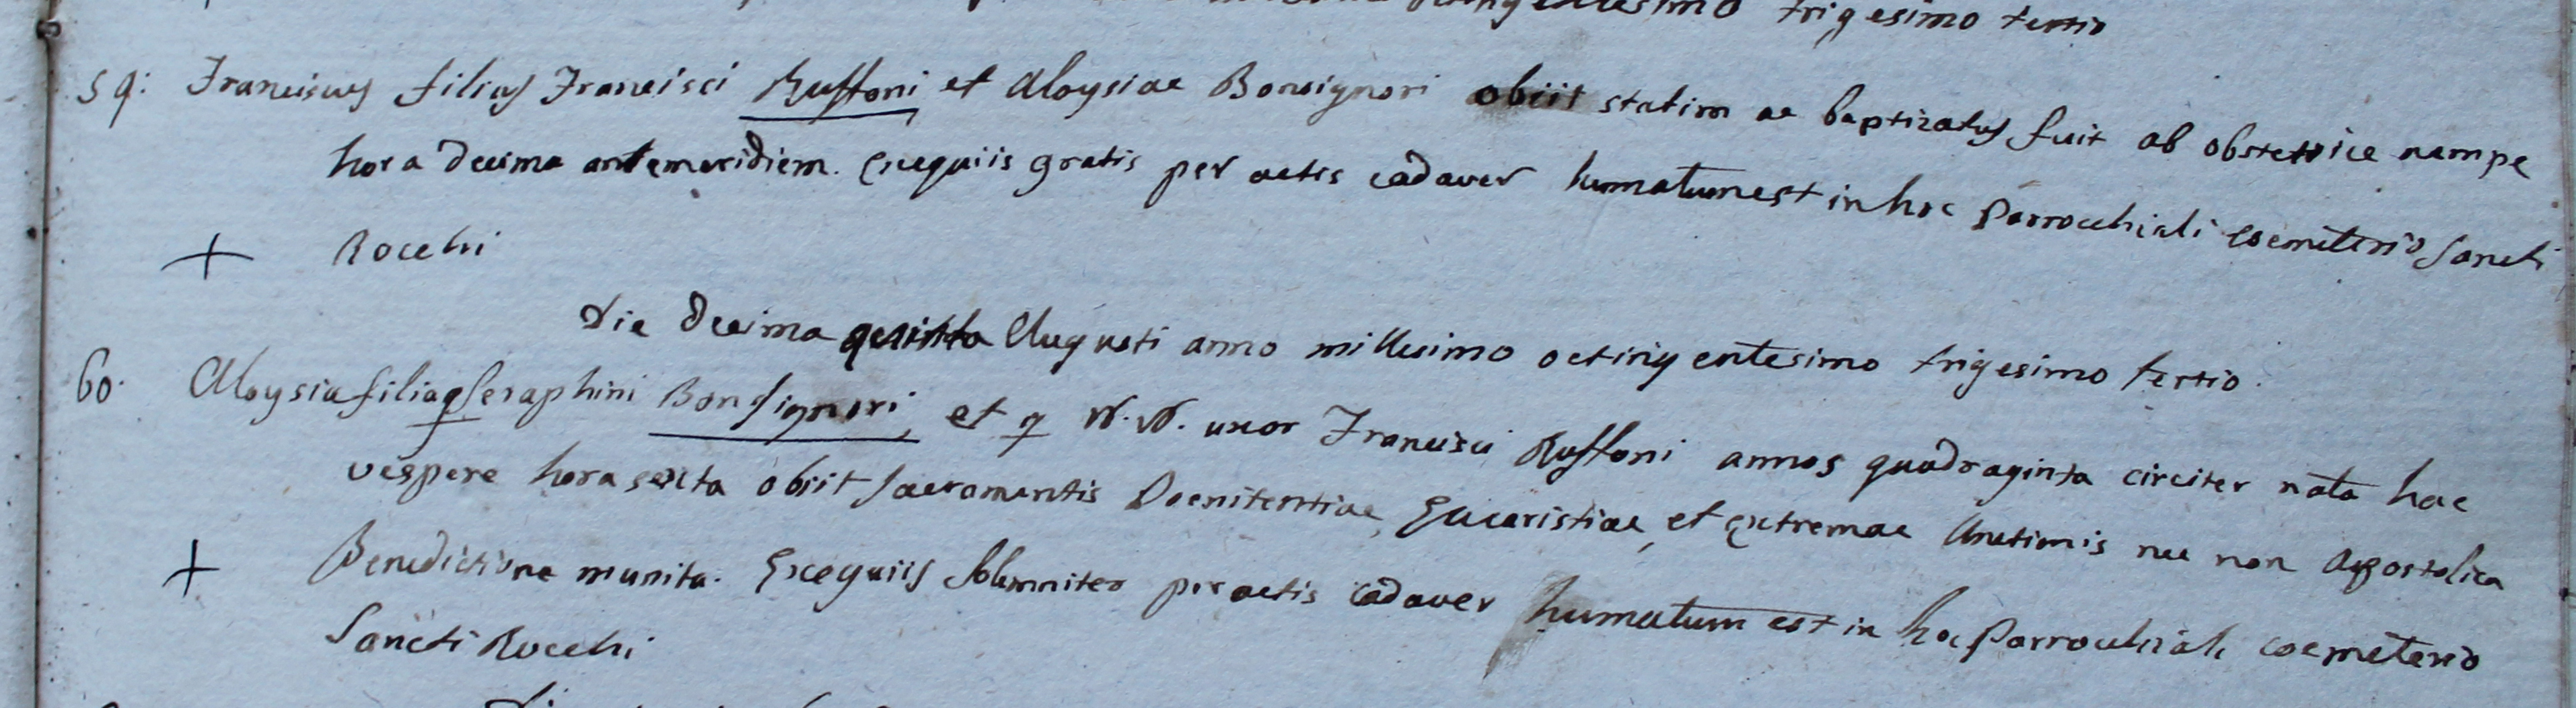 octingentesimo trigesimo tertio
59. Franciscus filius Francisci Ruffoni et Aloysiae Bonsignori obiit statim ac baptizatus fuit ab obstetrice nempe
hora decima antemeridiem. Exequiis gratis peractis cadaver humatum est in hoc Parrochiali coemeterio Sancti
+ Rocchi
Die decima quinta Augusti anno millesimo octingentesimo trigesimo tertio.
60. Aloysia filia q Seraphini Bonsignori, et q N.N. uxor Francisci Ruffoni annos quadraginta circiter nata hac
vespere hora sexta obiit Sacramentis Poenitentiae, Eucaristiae, et Extremae Unctionis nec non Apostolica
+ Benedictione munita. Exequiis solemniter peractis cadaver humatum est in hoc Parrochiali coemeterio
Sancti Rocchi